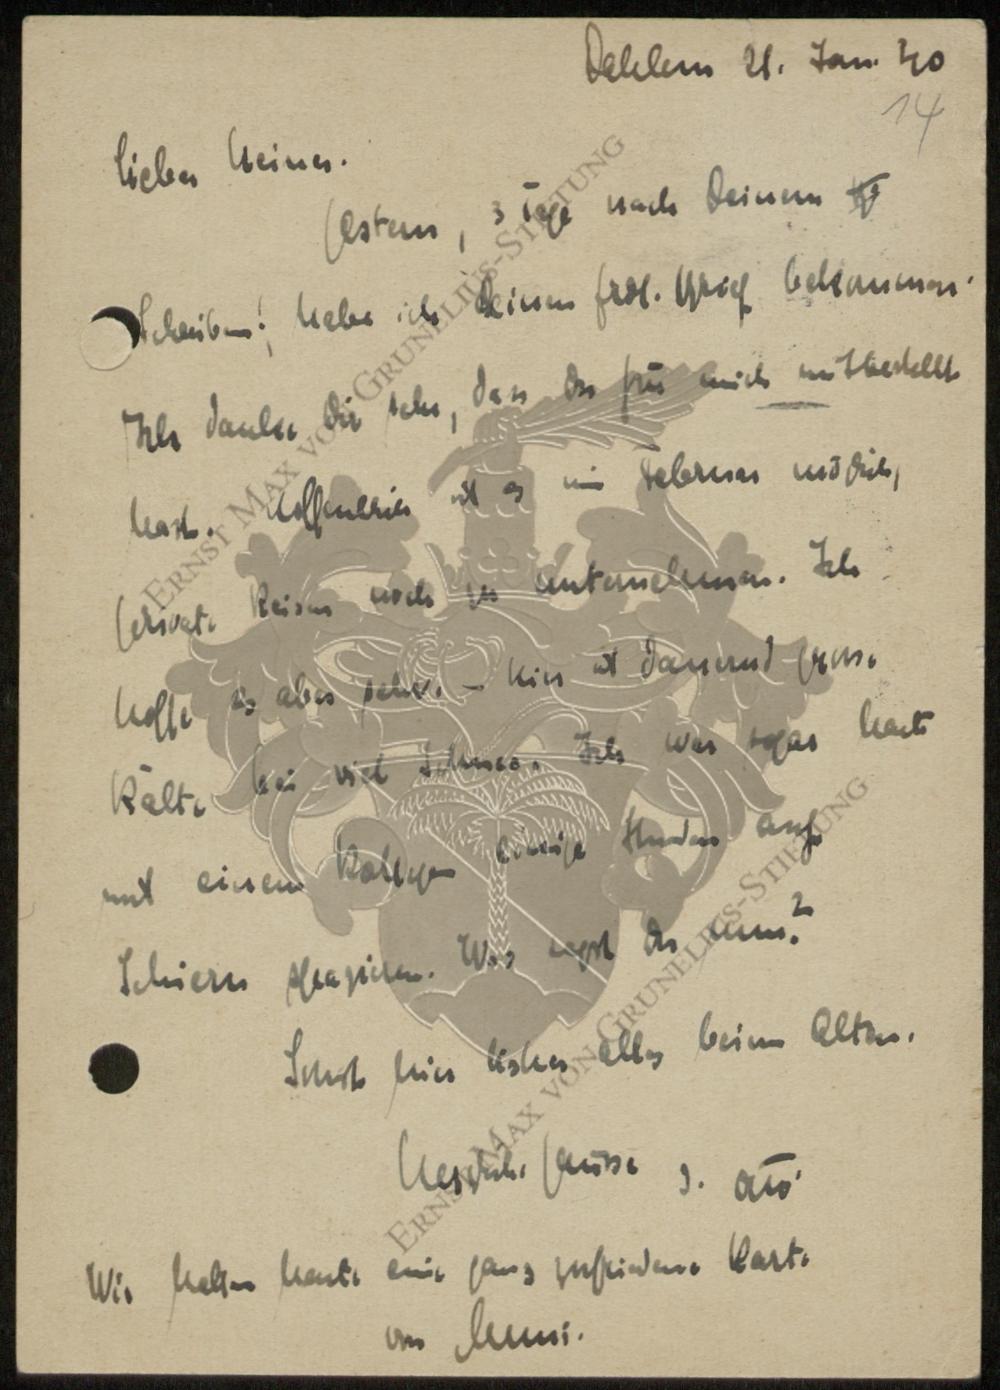 Dahlem 21. Jan. 40
14
Lieber Heiner.
Gestern, 3 Tage nach Deinem
Schreiben! habe ich Deinen frdl. Brief bekommen.
Ich danke Dir sehr, dass Du für mich mitbestellt
hast. Hoffentlich ist es im Februar möglich,
private Reisen noch zu unternehmen. Ich
hoffe es aber sehr. – Hier ist dauernd grosse
Kälte bei viel Schnee. Ich war sogar heute
mit einem Kollegen einige Stunden auf
Schiern spazieren. Was sagst Du nun?
Sonst hier bisher alles beim Alten.
Herzliche Grüsse D.
Wir hatten heute eine ganz zufriedene Karte
von
ERNST MAX VON GRUNELIUS-STIFTUNG
ERNST MAX VON GRUNELIUS-STIFTUNG